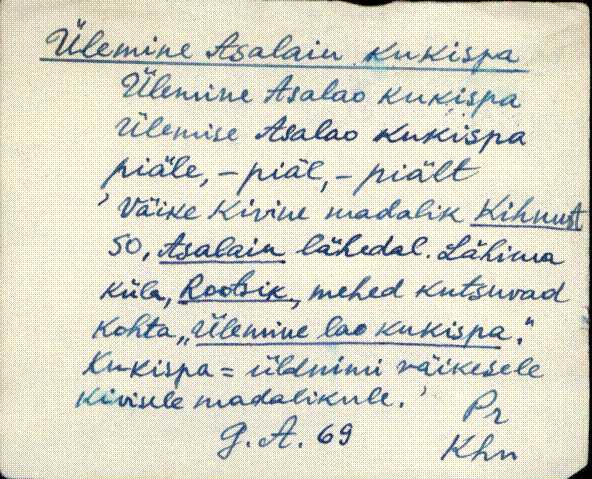 Ülemine Asalaiu kukispa
Ülemine Asalao kukispa
Ülemise Asalao kukispa
piäle, - piäl, - piält
' Väike kivine madalik Kihnust
SO, Asalaiu lähedal. Lähima
küla, Rootsik, mehed kutsuvad
kohta „Ülemine lao kukispa."
Kukispa = üldnimi väikesele
kivisele madalikule.'
Pr
G. A. 69
Khn